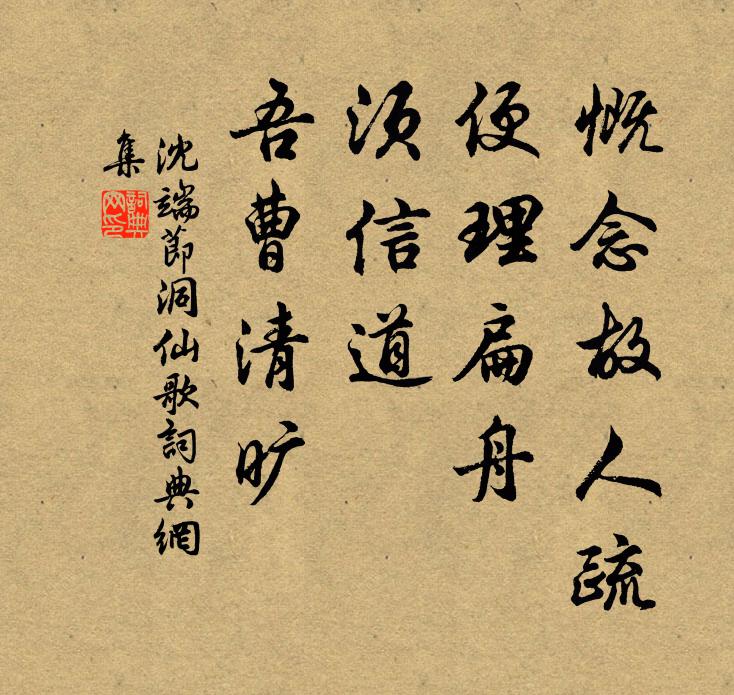 慨念故人疏
便理扁舟
须信道
吾曹清旷
沈端節洞仙歌詞典網
集
詞典网印